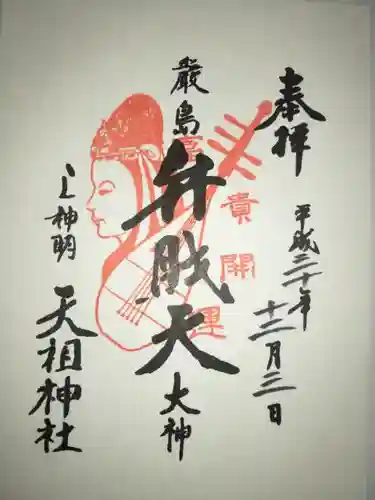 奉拝
平成二十年
十二月二日
厳島
弁財天
大神
富貴開運
上神明
天祖神社